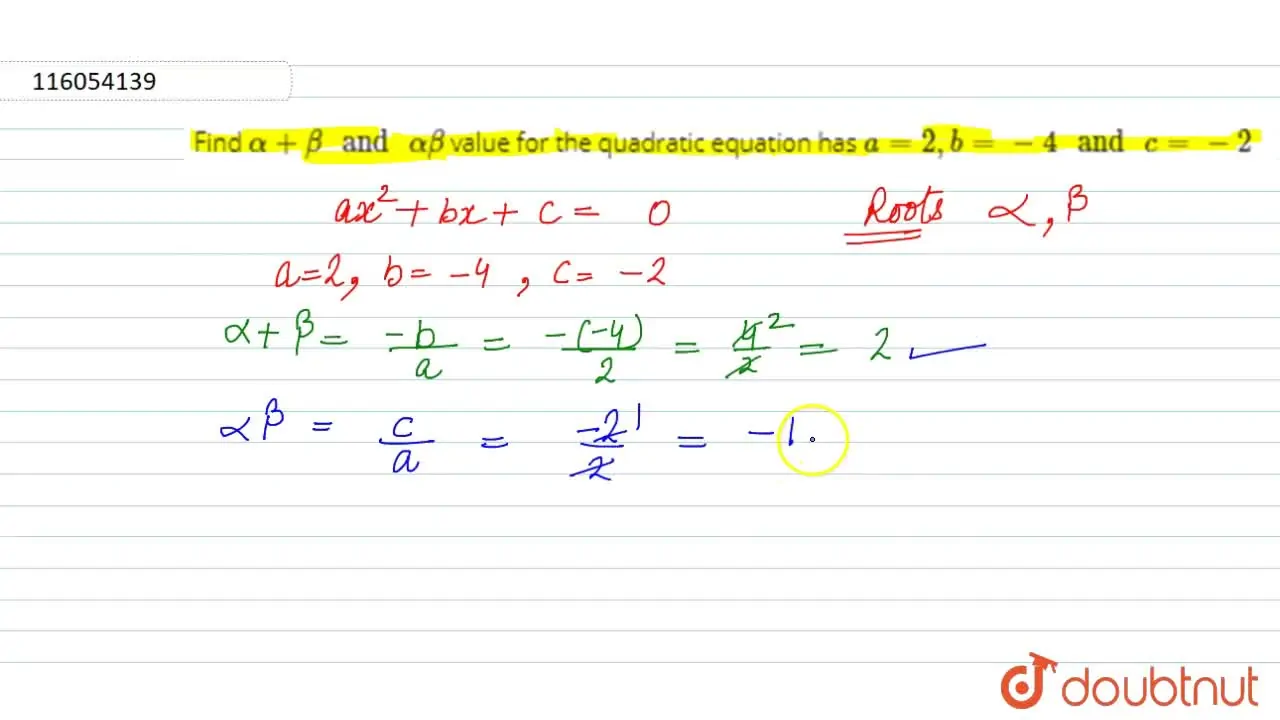 116054139
Find α + β and αβ value for the quadratic equation has a = 2, b = - 4 and c = - 2
ax² + bx + c = 0 Roots α, β
a=2, b= -4, c= -2
α+β = -b/a = -(-4)/2 = 4²/2 = 2
αβ = c/a = -2¹/2 = -1.
doubtnut